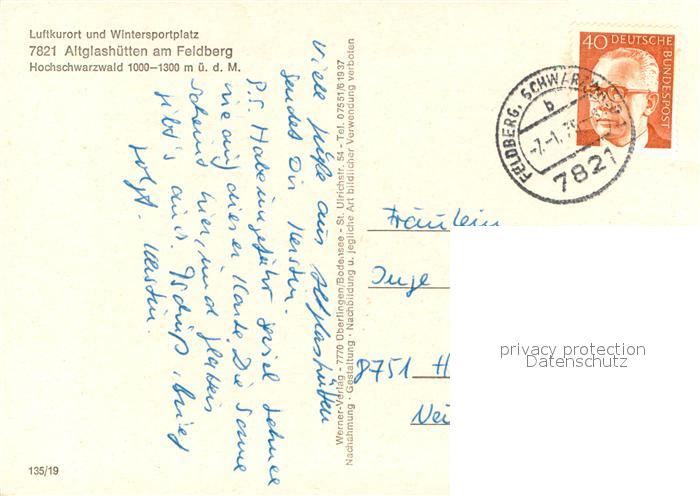 Luftkurort und Wintersportplatz
7821 Altglashütten am Feldberg
Hochschwarzwald 1000–1300 m ü. d. M.
Viele Grüße aus Altglashütten
sendet Dir Kerstin.
P.S. Habe ungefähr soviel Schnee
wie auf dieser Karte. Die Sonne
scheint hier, und
gibt's auch. Tschüß, Brief
folgt. Kerstin.
135/19
Werner-Verlag - 7770 Überlingen/Bodensee - St. Ulrichstr. 54 - Tel. 07551/61937
Nachahmung - Gestaltung - Nachbildung u. jegliche Art bildlicher Verwendung verboten
40 DEUTSCHE BUNDESPOST
FELDBERG, SCHWARZWALD
b
-7.-1.
7821
Fräulein
Inge
8751 H
privacy protection
Datenschutz